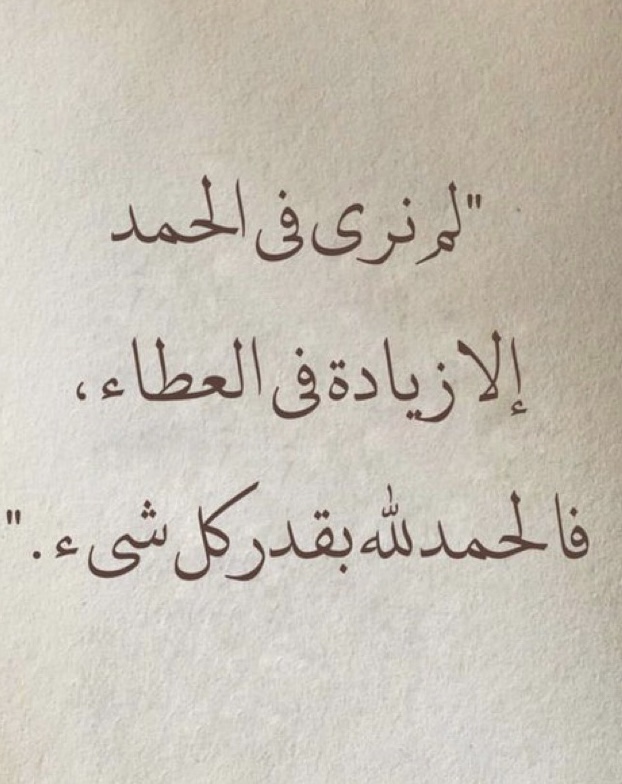 "لم نرى فى الحمد
إلا زيادة فى العطاء،
فالحمدلله بقدر كل شىء."